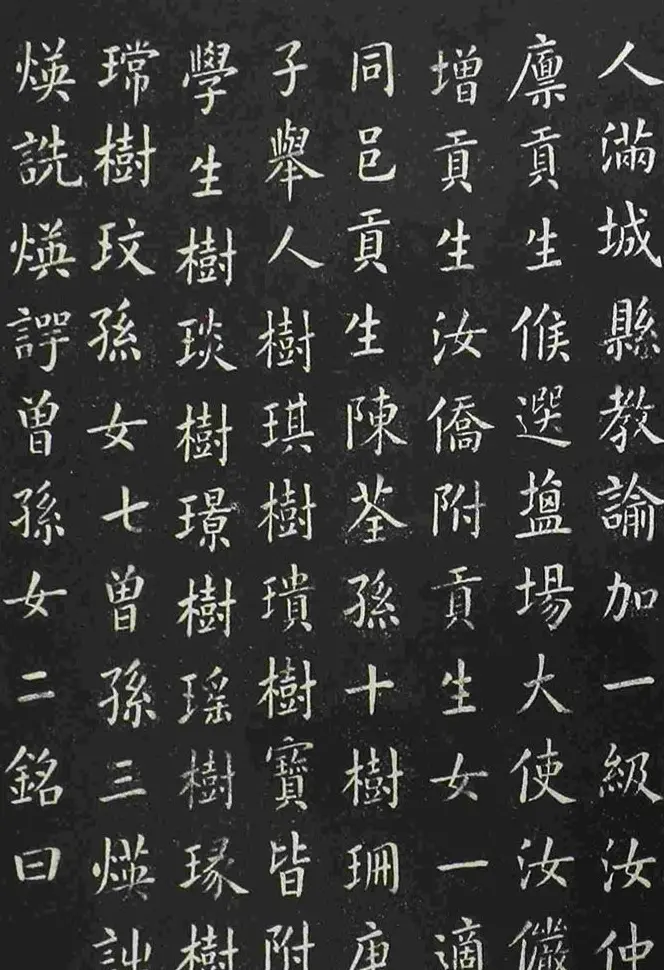 人滿城縣教諭加一級汝仲
廪貢生候選鹽場大使汝儼
增貢生汝僑附貢生女一適
同邑貢生陳荃孫十樹珊庚
子舉人樹琪樹璝樹寶皆附
學生樹琰樹璟樹瑤樹瑑樹
璸樹玟孫女七曾孫三煐訓
煐詵煐諤曾孫女二銘曰